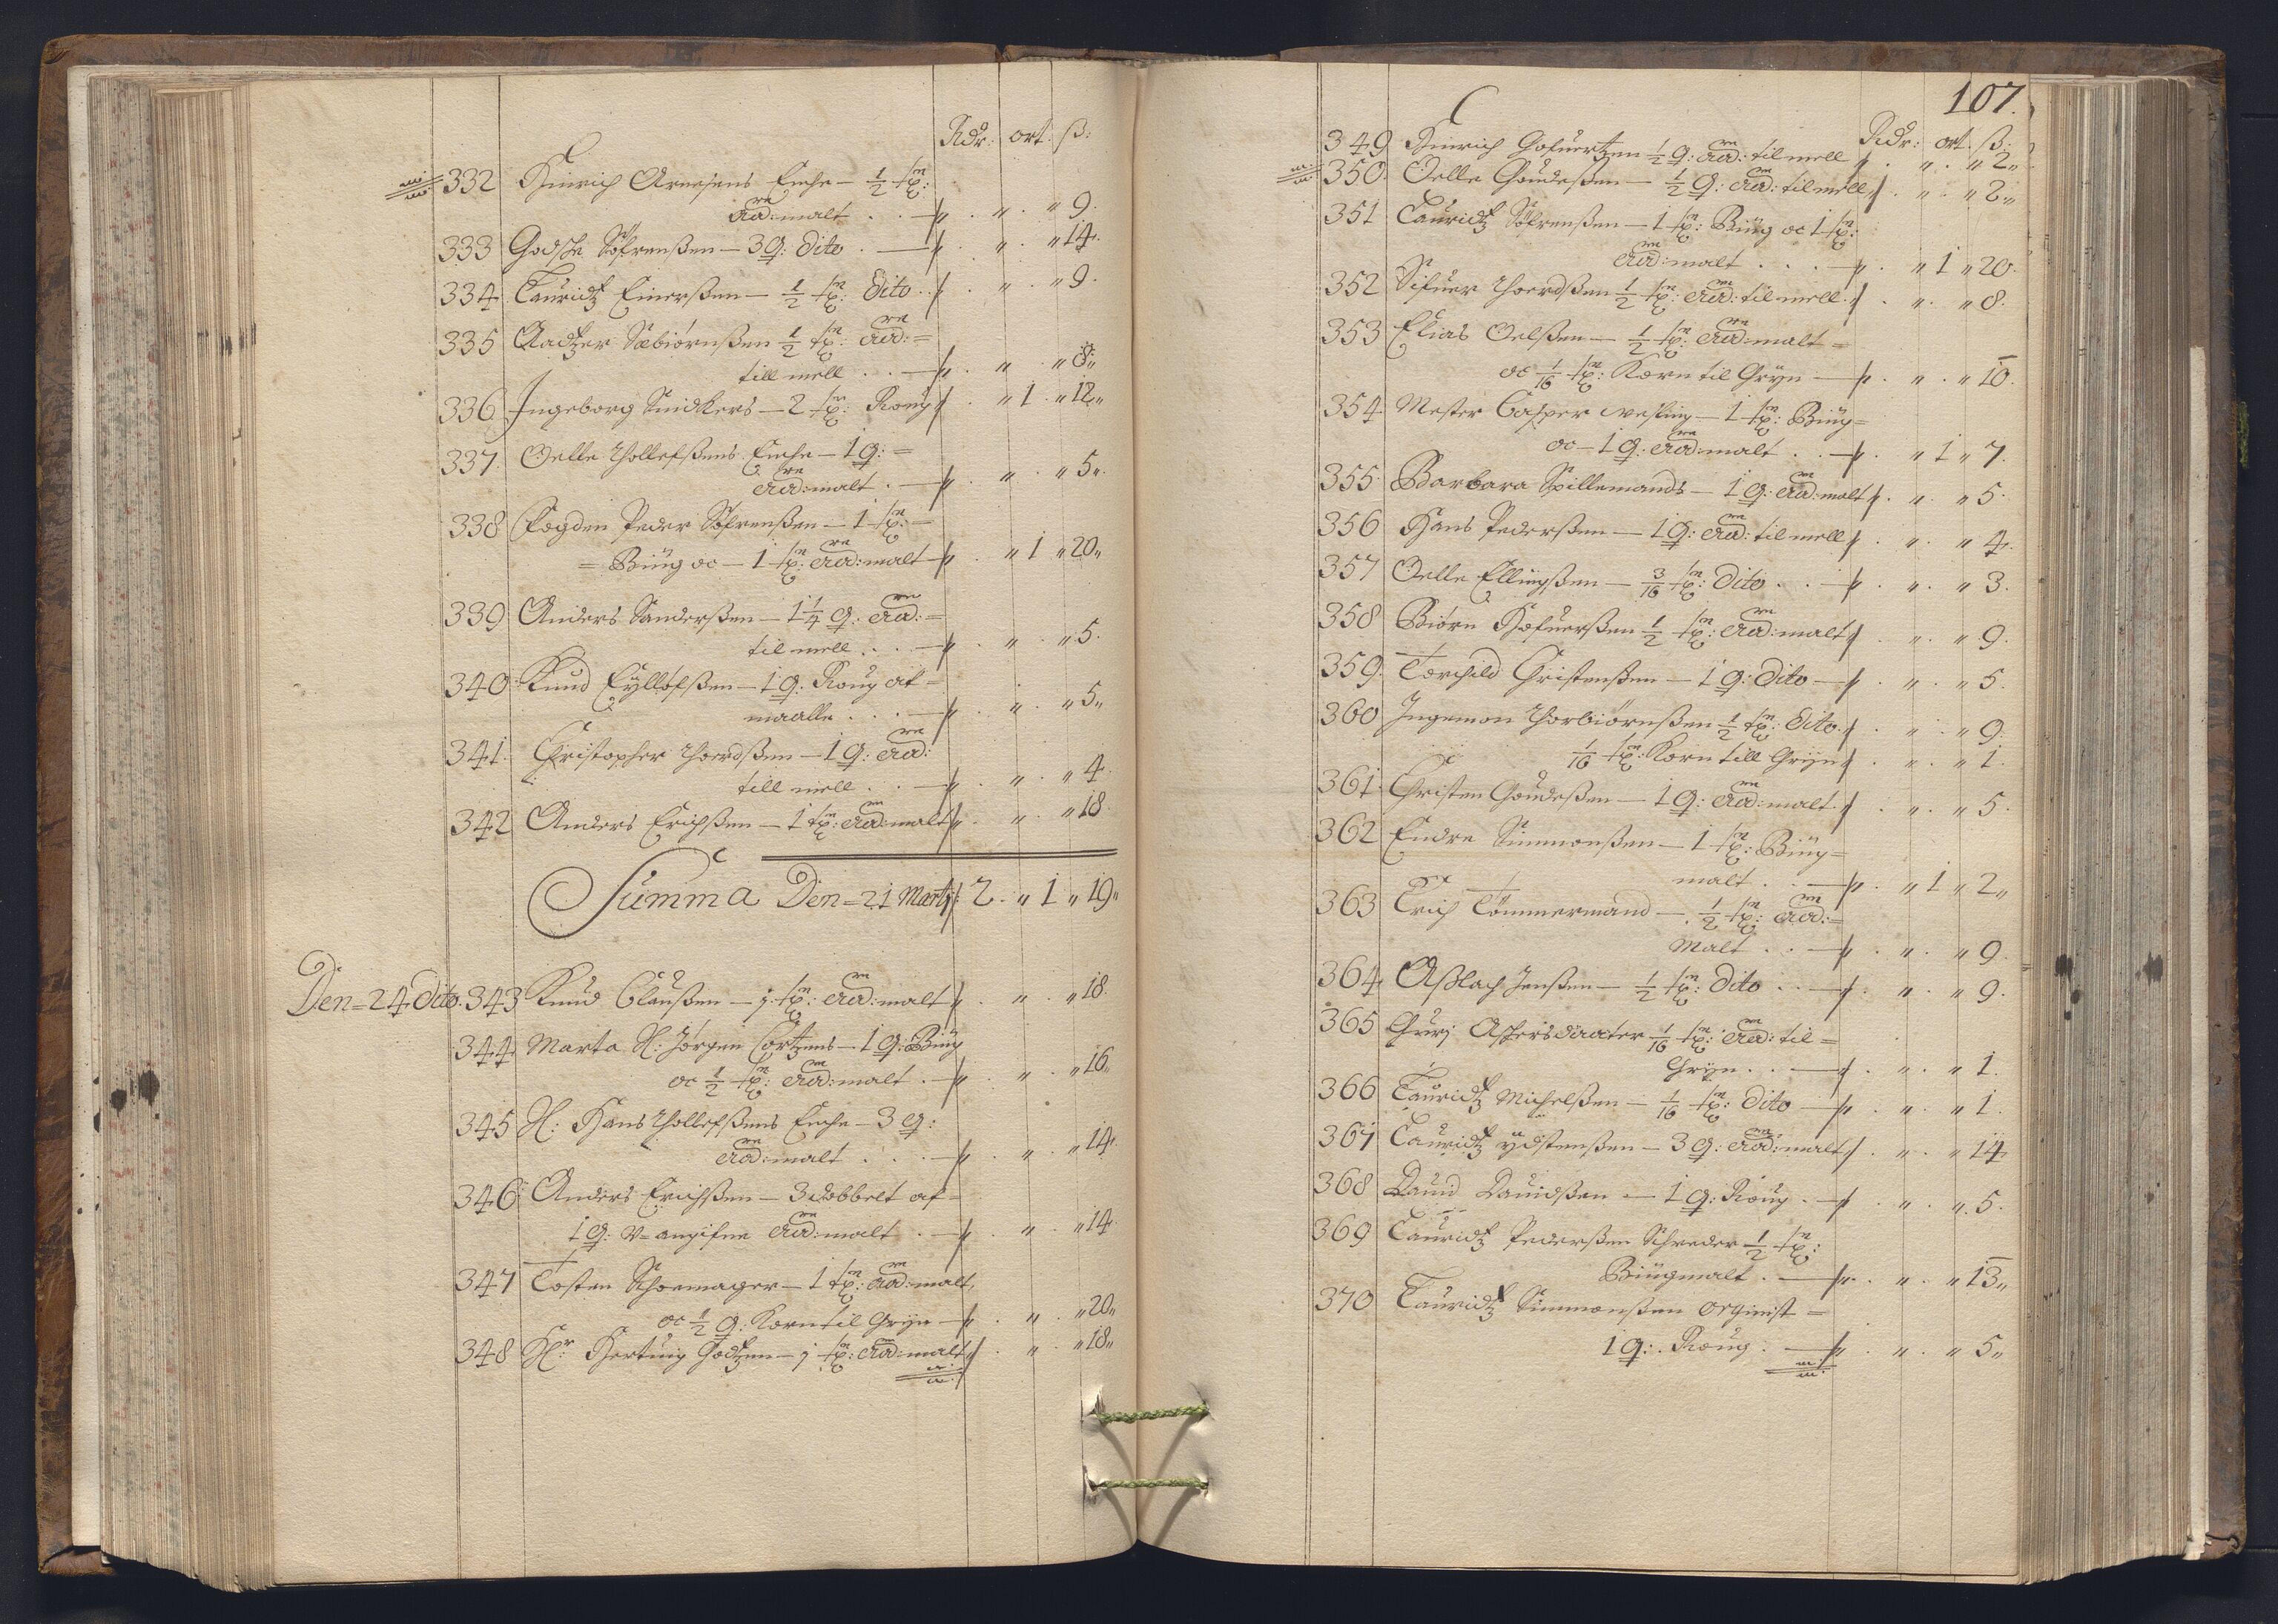 Rdr: ort. ß:
332 Hinrich Arnesens Enche — 1/2 tp:
Aud: malt . . — " . " 9.
333 Godsche Söfrenßen — 3 q: dito . — " . " 14.
334 Lauridtz Einerßen — 1/2 tp: dito . . " . " 9.
335 Aadtzer Sæbiörnßen 1/2 tp: Aud: =
till mell . . — " . " 8"
336 Ingeborg Snidkers — 2 tp: Roug " 1 " 12"
337. Oelle Thollefßens Enche — 1 q: =
Aud: malt . — " . " 5".
338 Fogden Peder Söfrenßen — 1 tp: =
= Biüg oc — 1 tp: Aud: malt — " 1 " 20"
339 Anders Sanderßen — 1 1/4 q: Aud: =
til mell . . . — " . " 5.
340. Knud Eyllofßen — 1 q. Roug af =
maalle . . . — " . " 5"
341. Christopher Thordßen — 1 q: Aud:
till mell . . — " . " 4.
342 Anders Erichßen — 1 tp: Aud: malt " . " 18.
Summa Den = 21 Martij: 2 . " 1 " 19"
Den = 24 Dito. 343 Knud Claußen — 1 tp: Aud: malt " . " 18.
344 Marta H: Jörgen Cortzens — 1 q: Biüg
oc 1/2 tp: Aud: malt . — " . " 16"
345 H: Hans Thollefßens Enche — 3 q:
Aud: malt . . . — " . " 14.
346 Anders Erichßen — 3 dobbelt af =
1 q: V = angifne Aud: malt . — " . " 14.
347 Tosten Schoemager — 1 tp: Aud: malt,
oc 1/2 q: Korn til Gryn — " . " 20"
348 Hr: Hertuig Godtzen — 1 tp: Aud: malt " . " 18"
107.
Rdr: ort. ß:
349 Hinrich Gofuertzen 1/2 q: Aud: til mell " . " 2"
350. Oelle Goudeßen — 1/2 q: Aud: til mell " . " 2"
351 Lauridtz Söfrenßen — 1 tp: Biüg oc 1 tp:
Aud: malt . . . — " 1 " 20.
352 Sifuer Thordßen 1/2 tp: Aud: til mell " . " 8.
353 Elias Oelßen — 1/2 tp: Aud: malt =
oc 1/16 tp: Korn til Gryn — " . " 10.
354 Mester Casper Wesling — 1 tp: Biüg =
oc — 1 q: Aud: malt . . — " 1 " 7.
355 Barbara Spillemands — 1 q: Aud: malt " . " 5.
356 Hans Pederßen — 1 q: Aud: til mell " . " 4.
357 Oelle Ellingßen — 3/16 tp: dito . . — " . " 3.
358 Biörn Hofuerßen 1/2 tp: Aud: malt " . " 9.
359. Torchild Christenßen — 1 q: dito — " . " 5.
360 Ingemon Thorbiörnßen 1/2 tp: dito " . " 9.
1/16 tp: Korn till Gryn " . " 1.
361. Christen Goudeßen — 1 q: Aud: malt " . " 5.
362 Endre Simmonßen — 1 tp: Biüg =
malt . . — " 1 " 2"
363 Erich Tömmermand — 1/2 tp: Aud: =
Malt . . — " . " 9.
364 Aßlach Jenßen — 1/2 tp: dito . . — " . " 9.
365 Gurj Aschersdaater 1/16 tp: Aud: til =
Gryn . . — " . " 1.
366 Lauridtz Michelßen — 1/16 tp: dito — " . " 1.
367 Lauridtz ÿdstenßen — 3 q: Aud: malt " . " 14
368 Dauid Dauidßen — 1 q: Roug . — " . " 5.
369 Lauridtz Pederßen Schreder 1/2 tp:
Biügmalt . — " . " 13"
370 Lauridtz Simmonßen orginist =
1 q: Roug . — " . " 5"